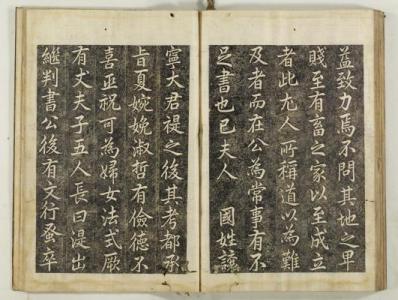 益致力焉不問其地之卑
賤至有畜之家以至成立
者此尤人所稱道以為難
及者而在公為常事有不
足書也已夫人　國姓譓
寧大君禔之後其考都承
旨夏婉娩淑哲有儉德不
喜巫祝可為婦女法式厥
有丈夫子五人長曰湜出
繼判書公後有文行蚤卒